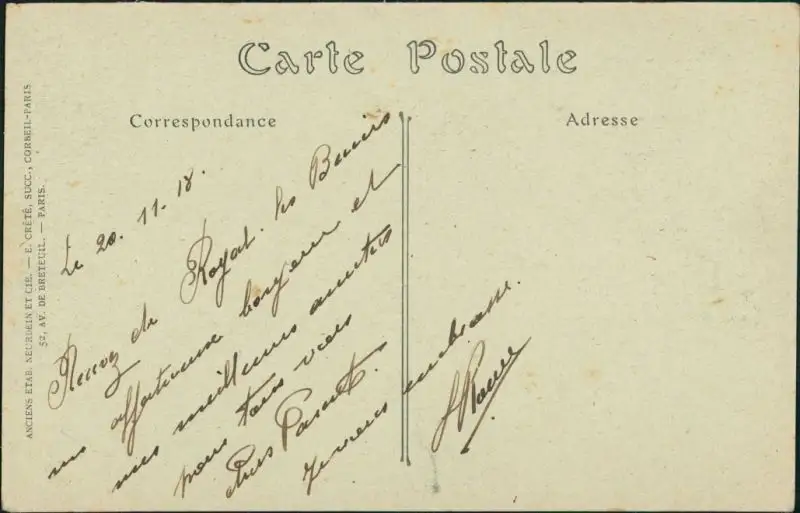 Carte Postale
Correspondance
Adresse
ANCIENS ETAB. NEURDEIN ET CIE. — E. CRÉTÉ, SUCC., CORBEIL-PARIS
52, AV. DE BRETEUIL. — PARIS.
Le 20. 11. 18.
de Royat. les
affectueux et
mes meilleures amitiés
pour tous
Je vous embrasse.